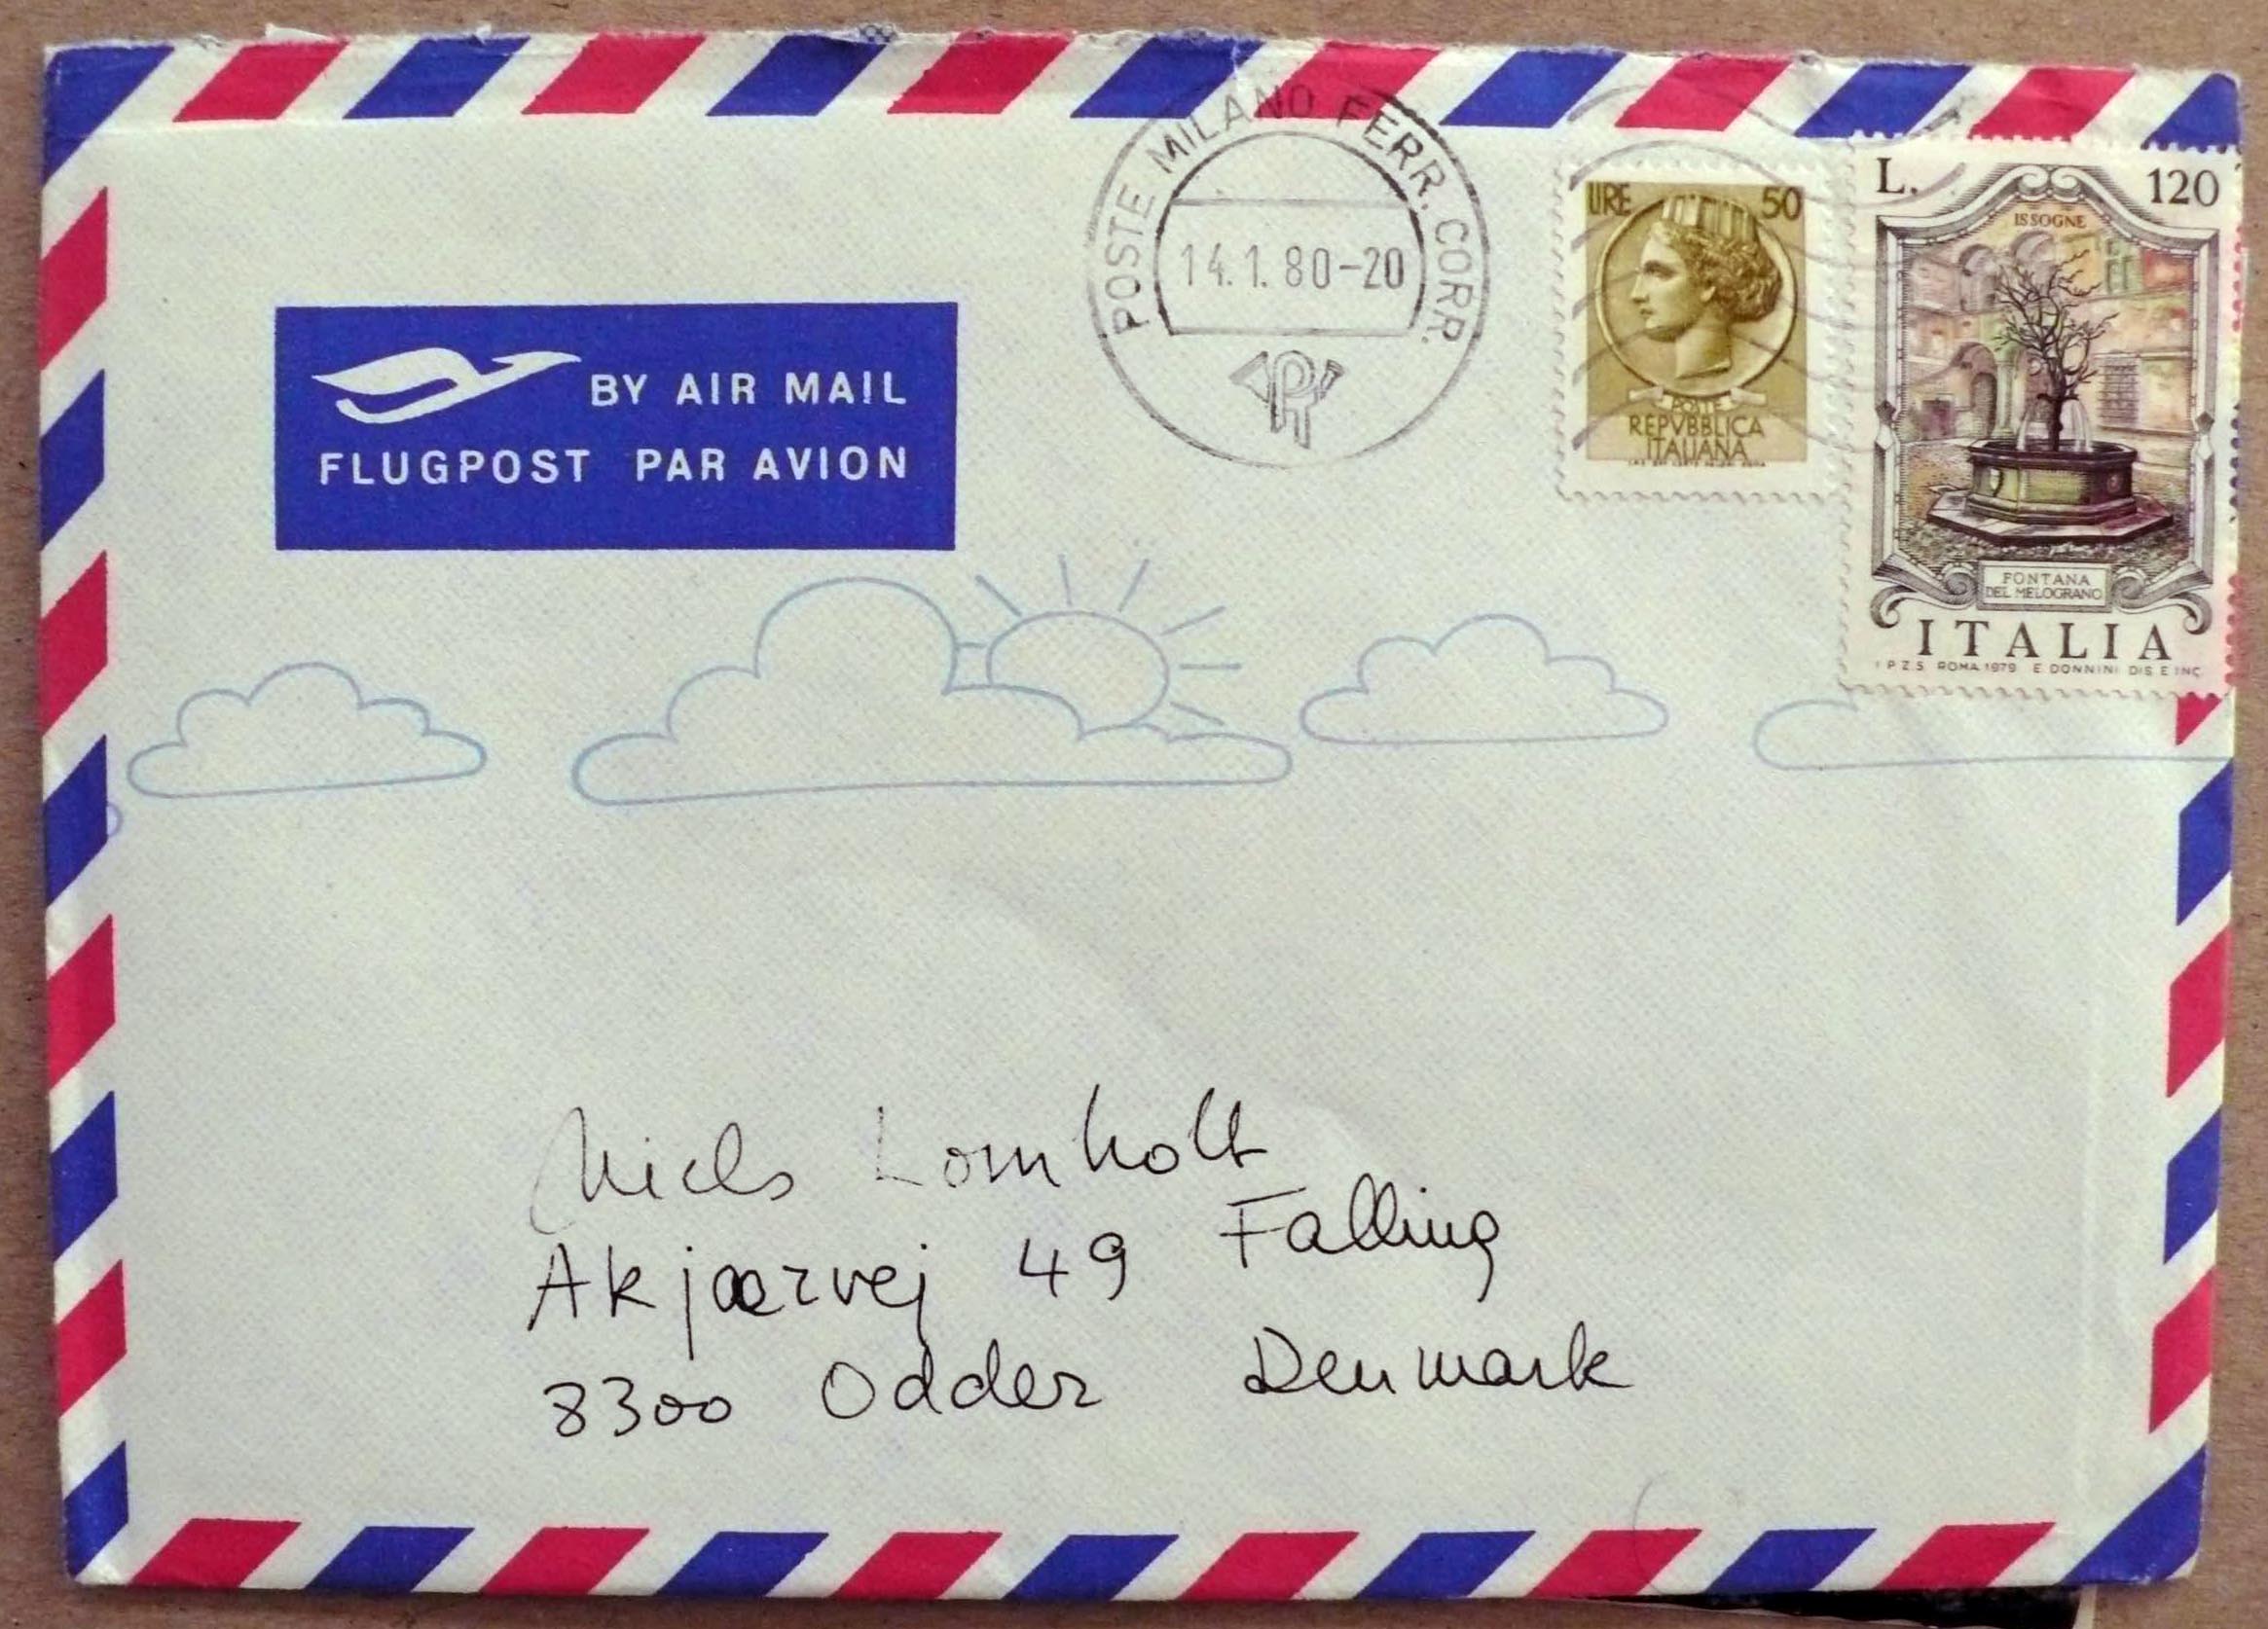 POSTE MILANO FERR. CORR.
14.1.80-20
PT
LIRE 50
POSTE
REPVBBLICA
ITALIANA
L. 120
ISSOGNE
FONTANA
DEL MELOGRANO
ITALIA
I.P.Z.S. ROMA 1979 E. DONNINI DIS. E INC.
BY AIR MAIL
FLUGPOST PAR AVION
Niels Lomholt
Akjærvej 49 Falling
8300 Odder Denmark